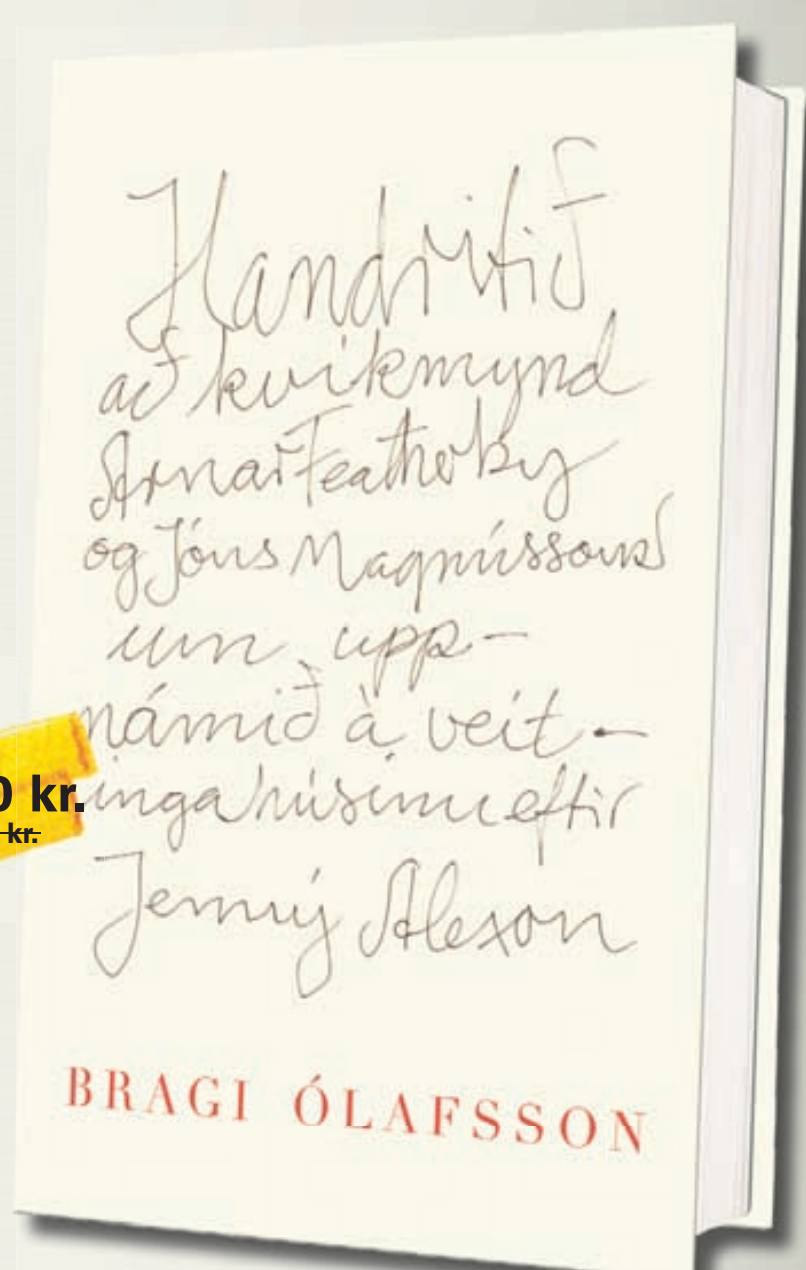 Handritið
að kvikmynd
Arnar Featherby
og Jóns Magnússonar
um upp-
námið á veit-
0 kr.
kr.
ingahúsinu eftir
Jenný Alexson
BRAGI ÓLAFSSON